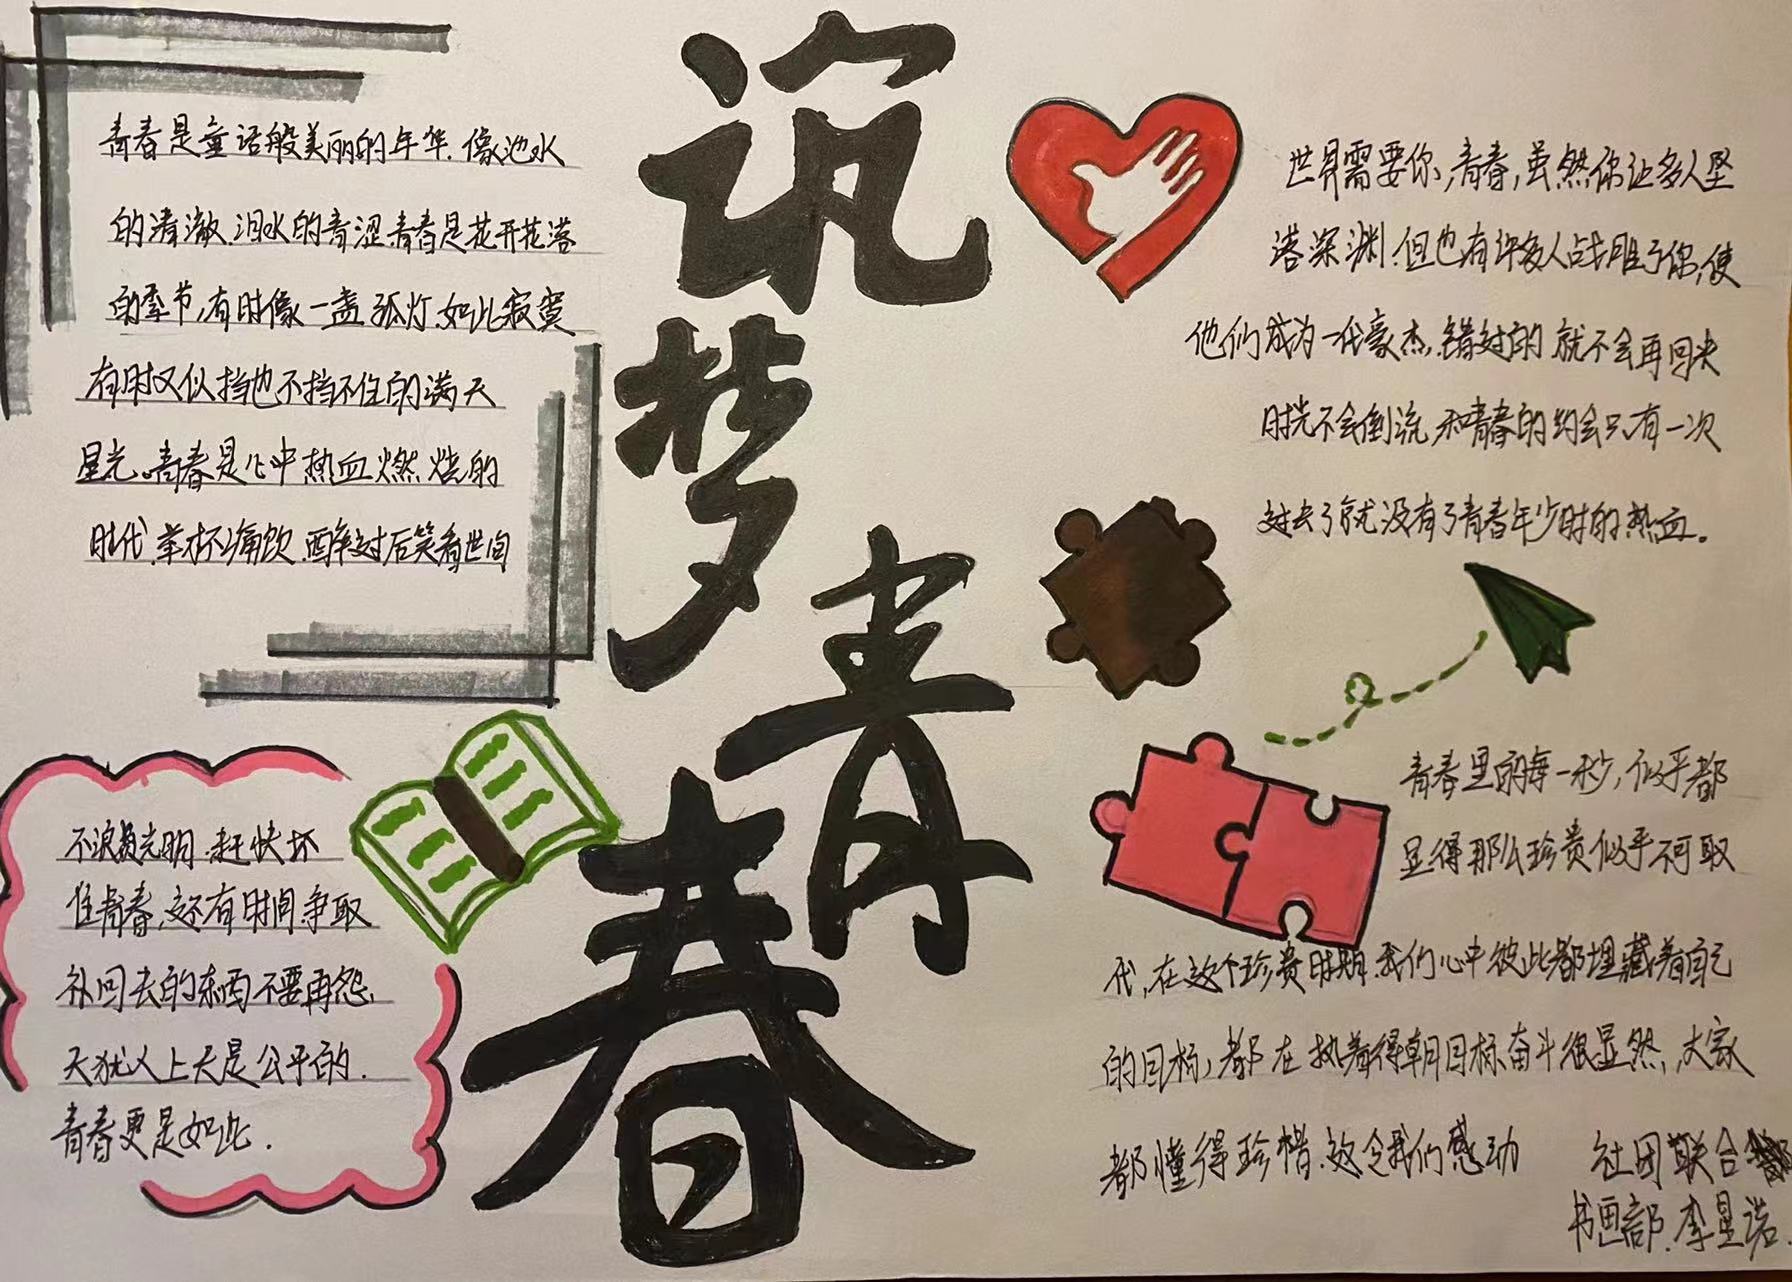 筑梦青春
青春是童话般美丽的年华.像池水
的清澈.泪水的青涩.青春是花开花落
的季节,有时像一盏孤灯.如此寂寞
有时又似挡也不挡不住的满天
星光。青春是心中热血燃烧的
时代.举杯痛饮.醉过后笑看世间
世界需要你,青春,虽然你让多人坠
落深渊.但也有许多人战胜了你,使
他们成为一代豪杰,错过的就不会再回来
时光不会倒流,和青春的约会只有一次
过去了就没有了青春年少时的热血。
不浪费光阴.赶快抓
住青春,还有时间争取
补回去的东西不要再怨.
天犹人上天是公平的.
青春更是如此.
青春里的每一秒,似乎都
显得那么珍贵似乎不可取
代,在这个珍贵时期.我们心中彼此都埋藏着自己
的目标,都在执着得朝目标奋斗很显然,大家
都懂得珍惜.这令我们感动
社团联合
书画部.李星诺.